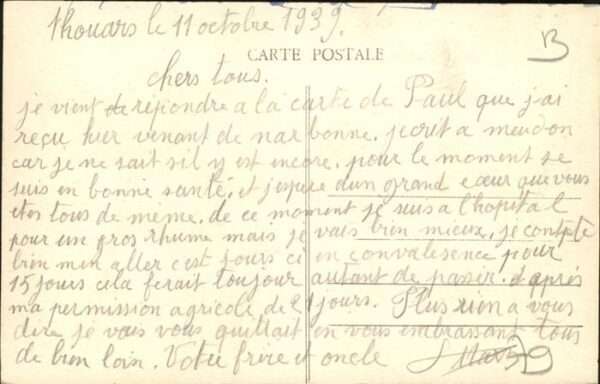 thouars le 11 octobre 1939.
B
CARTE POSTALE
chers tous.
je vient de repondre a la carte de Paul que j'ai
reçu hier venant de narbonne. j'ecrit a meudon
car je ne sait s'il y est encore. pour le moment se
suis en bonne santé. et j'espere d'un grand cœur que vous
etes tous de même. de ce moment je suis a l'hopital
pour un gros rhume mais je vais bien mieux. je compte
bien m'en aller c'est jours ci en convalesence pour
15 jours cela ferait toujour autant de passer. et après
ma permission agricole de 21 jours. Plus rien a vous
dire je vais vous quittait en vous embrassant tous
de bien loin. Votre frère et oncle